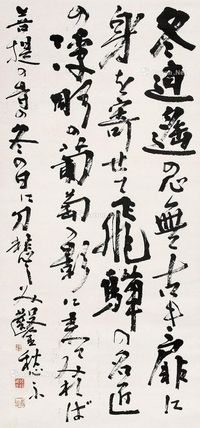 冬逍遥 古き扉に
身を寄せて飛騨の名匠
の浮彫の葡萄の影に立てみれば
菩提の寺の冬の日に刀悲しみ鑿愁ふ